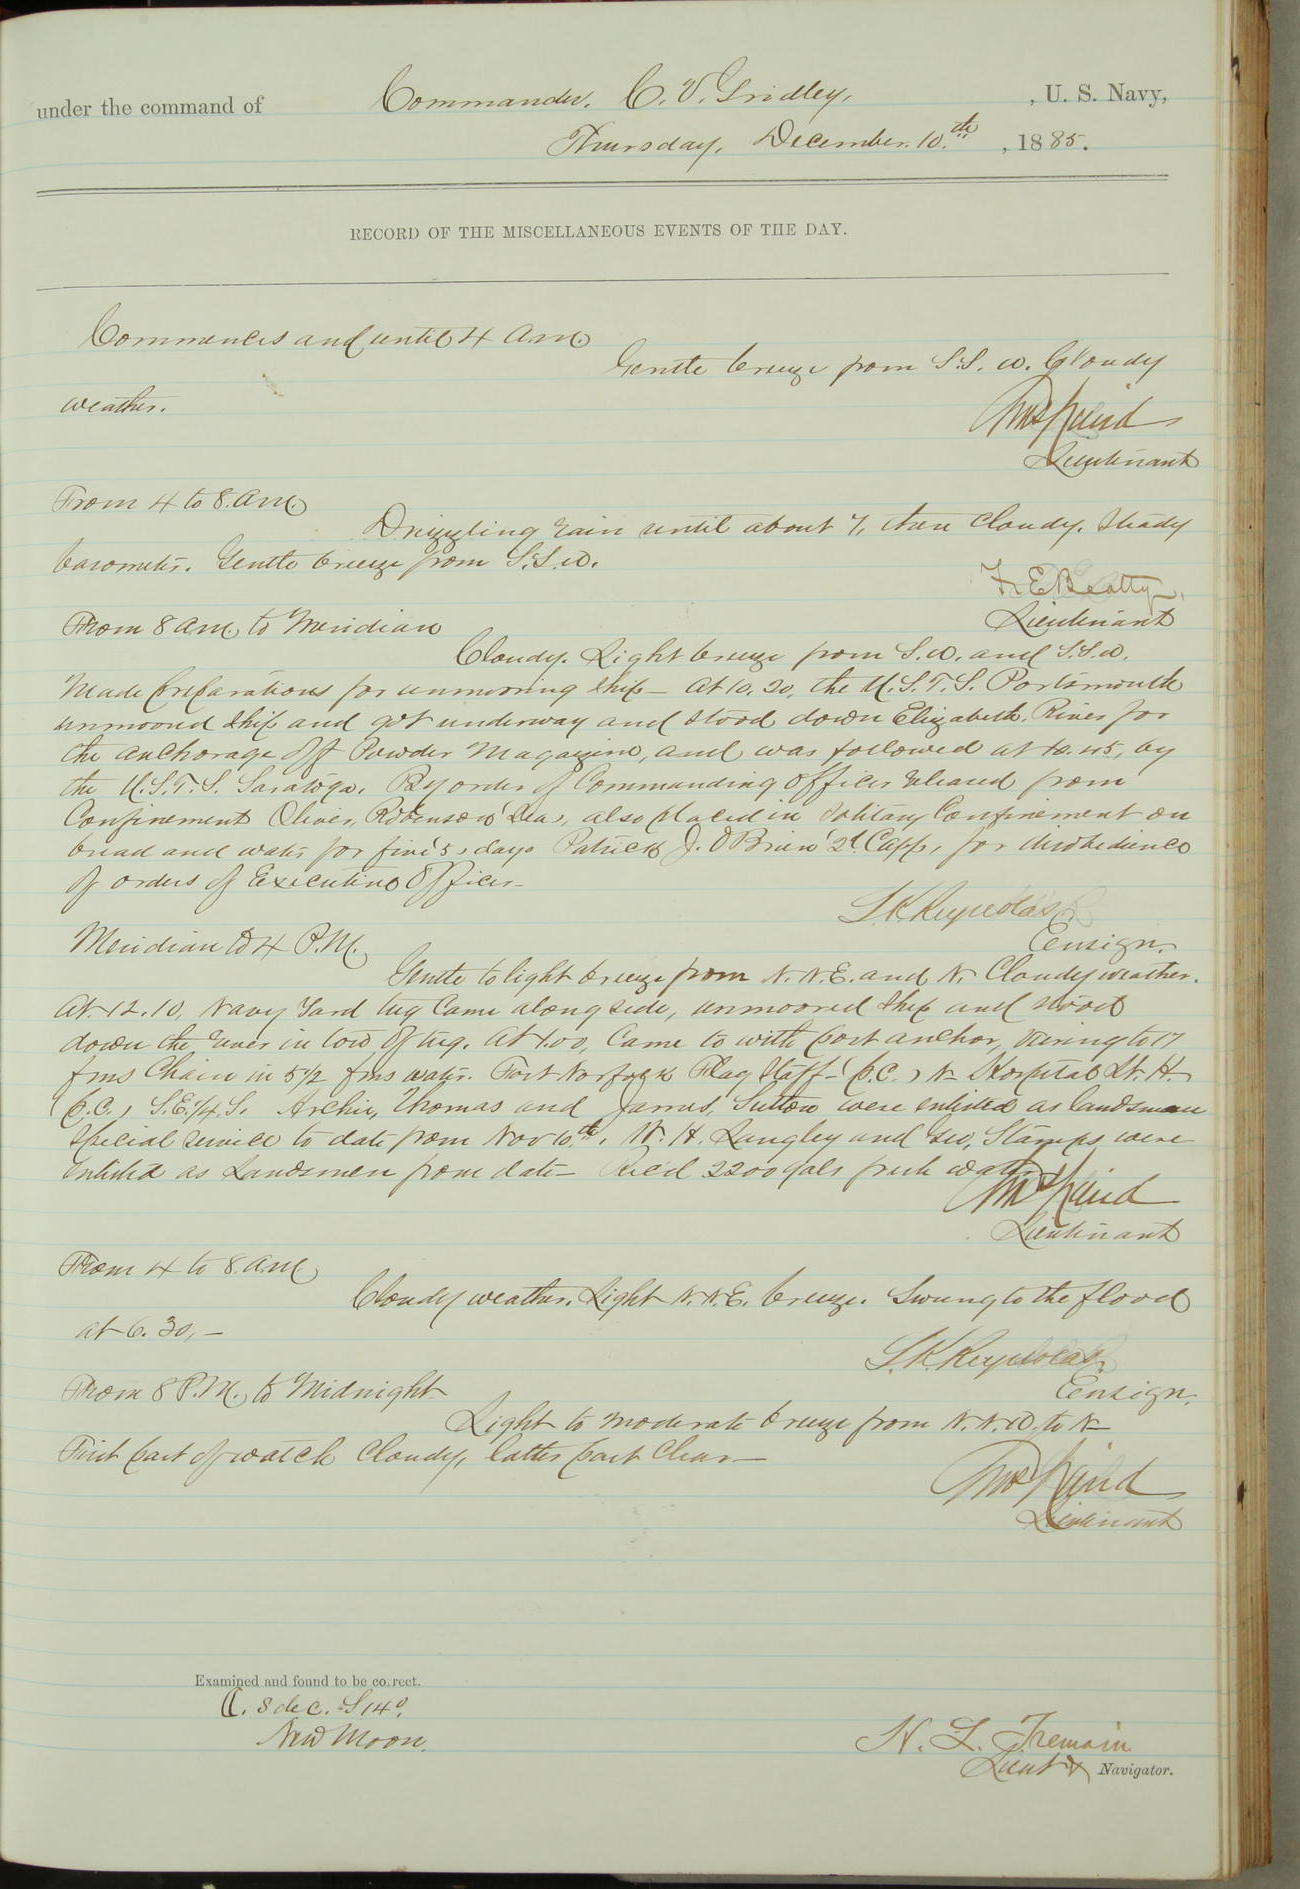 under the command of Commander. C. V. Gridley, , U. S. Navy,
Thursday, December. 10.th , 1885.
RECORD OF THE MISCELLANEOUS EVENTS OF THE DAY.
Commences and until 4 a.m.
Gentle breeze from S.S.W. Cloudy
weather.
Lieutenant
From 4 to 8. a.m.
Drizzling rain until about 7, then cloudy. Steady
barometer. Gentle breeze from S.S.W.
F. E. Beatty,
Lieutenant
From 8 a.m. to Meridian
Cloudy. Light breeze from S.W. and S.S.W.
Made preparations for unmooring ship — At 10.20, the U.S.T.S. Portsmouth
unmoored ship and got underway and stood down Elizabeth River for
the anchorage off Powder Magazine, and was followed at 10.45, by
the U.S.T.S. Saratoga. By order of Commanding Officer released from
Confinement Oliver, Robinson (Sea), also placed in solitary Confinement on
bread and water for five (5) days Patrick J. O'Brien (2d. Capp), for disobedience
of orders of Executive Officer —
S. K. Reynolds.
Ensign.
Meridian to 4 P.M.
Gentle to light breeze from N.N.E. and N. Cloudy weather.
At 12.10, Navy Yard tug came alongside, unmoored ship and stood
down the river in tow of tug. At 1.00, came to with port anchor, veering to 17
fms chain in 5 1/2 fms water. Fort Norfolk Flag Staff (p.c.) N — Hospital Lt. H.
(p.c.) S.E. 1/4 S. Archie, Thomas and James, Sutton were enlisted as landsmen
special service to date from Nov 10th. W. H. Langley and Geo, Stamps were
enlisted as Landsmen from date — Rec'd 2200 gals fresh water
Lieutenant
From 4 to 8. a.m.
Cloudy weather. Light N.N.E. breeze. Swung to the flood
at 6.30, —
S. K. Reynolds.
Ensign.
From 8 P.M. to Midnight
Light to moderate breeze from N.N.W. to N —
First part of watch cloudy, latter part clear —
Lieutenant
Examined and found to be correct.
8 dec. S 14°.
New Moon.
H. L. Tremain
Lieut & Navigator.